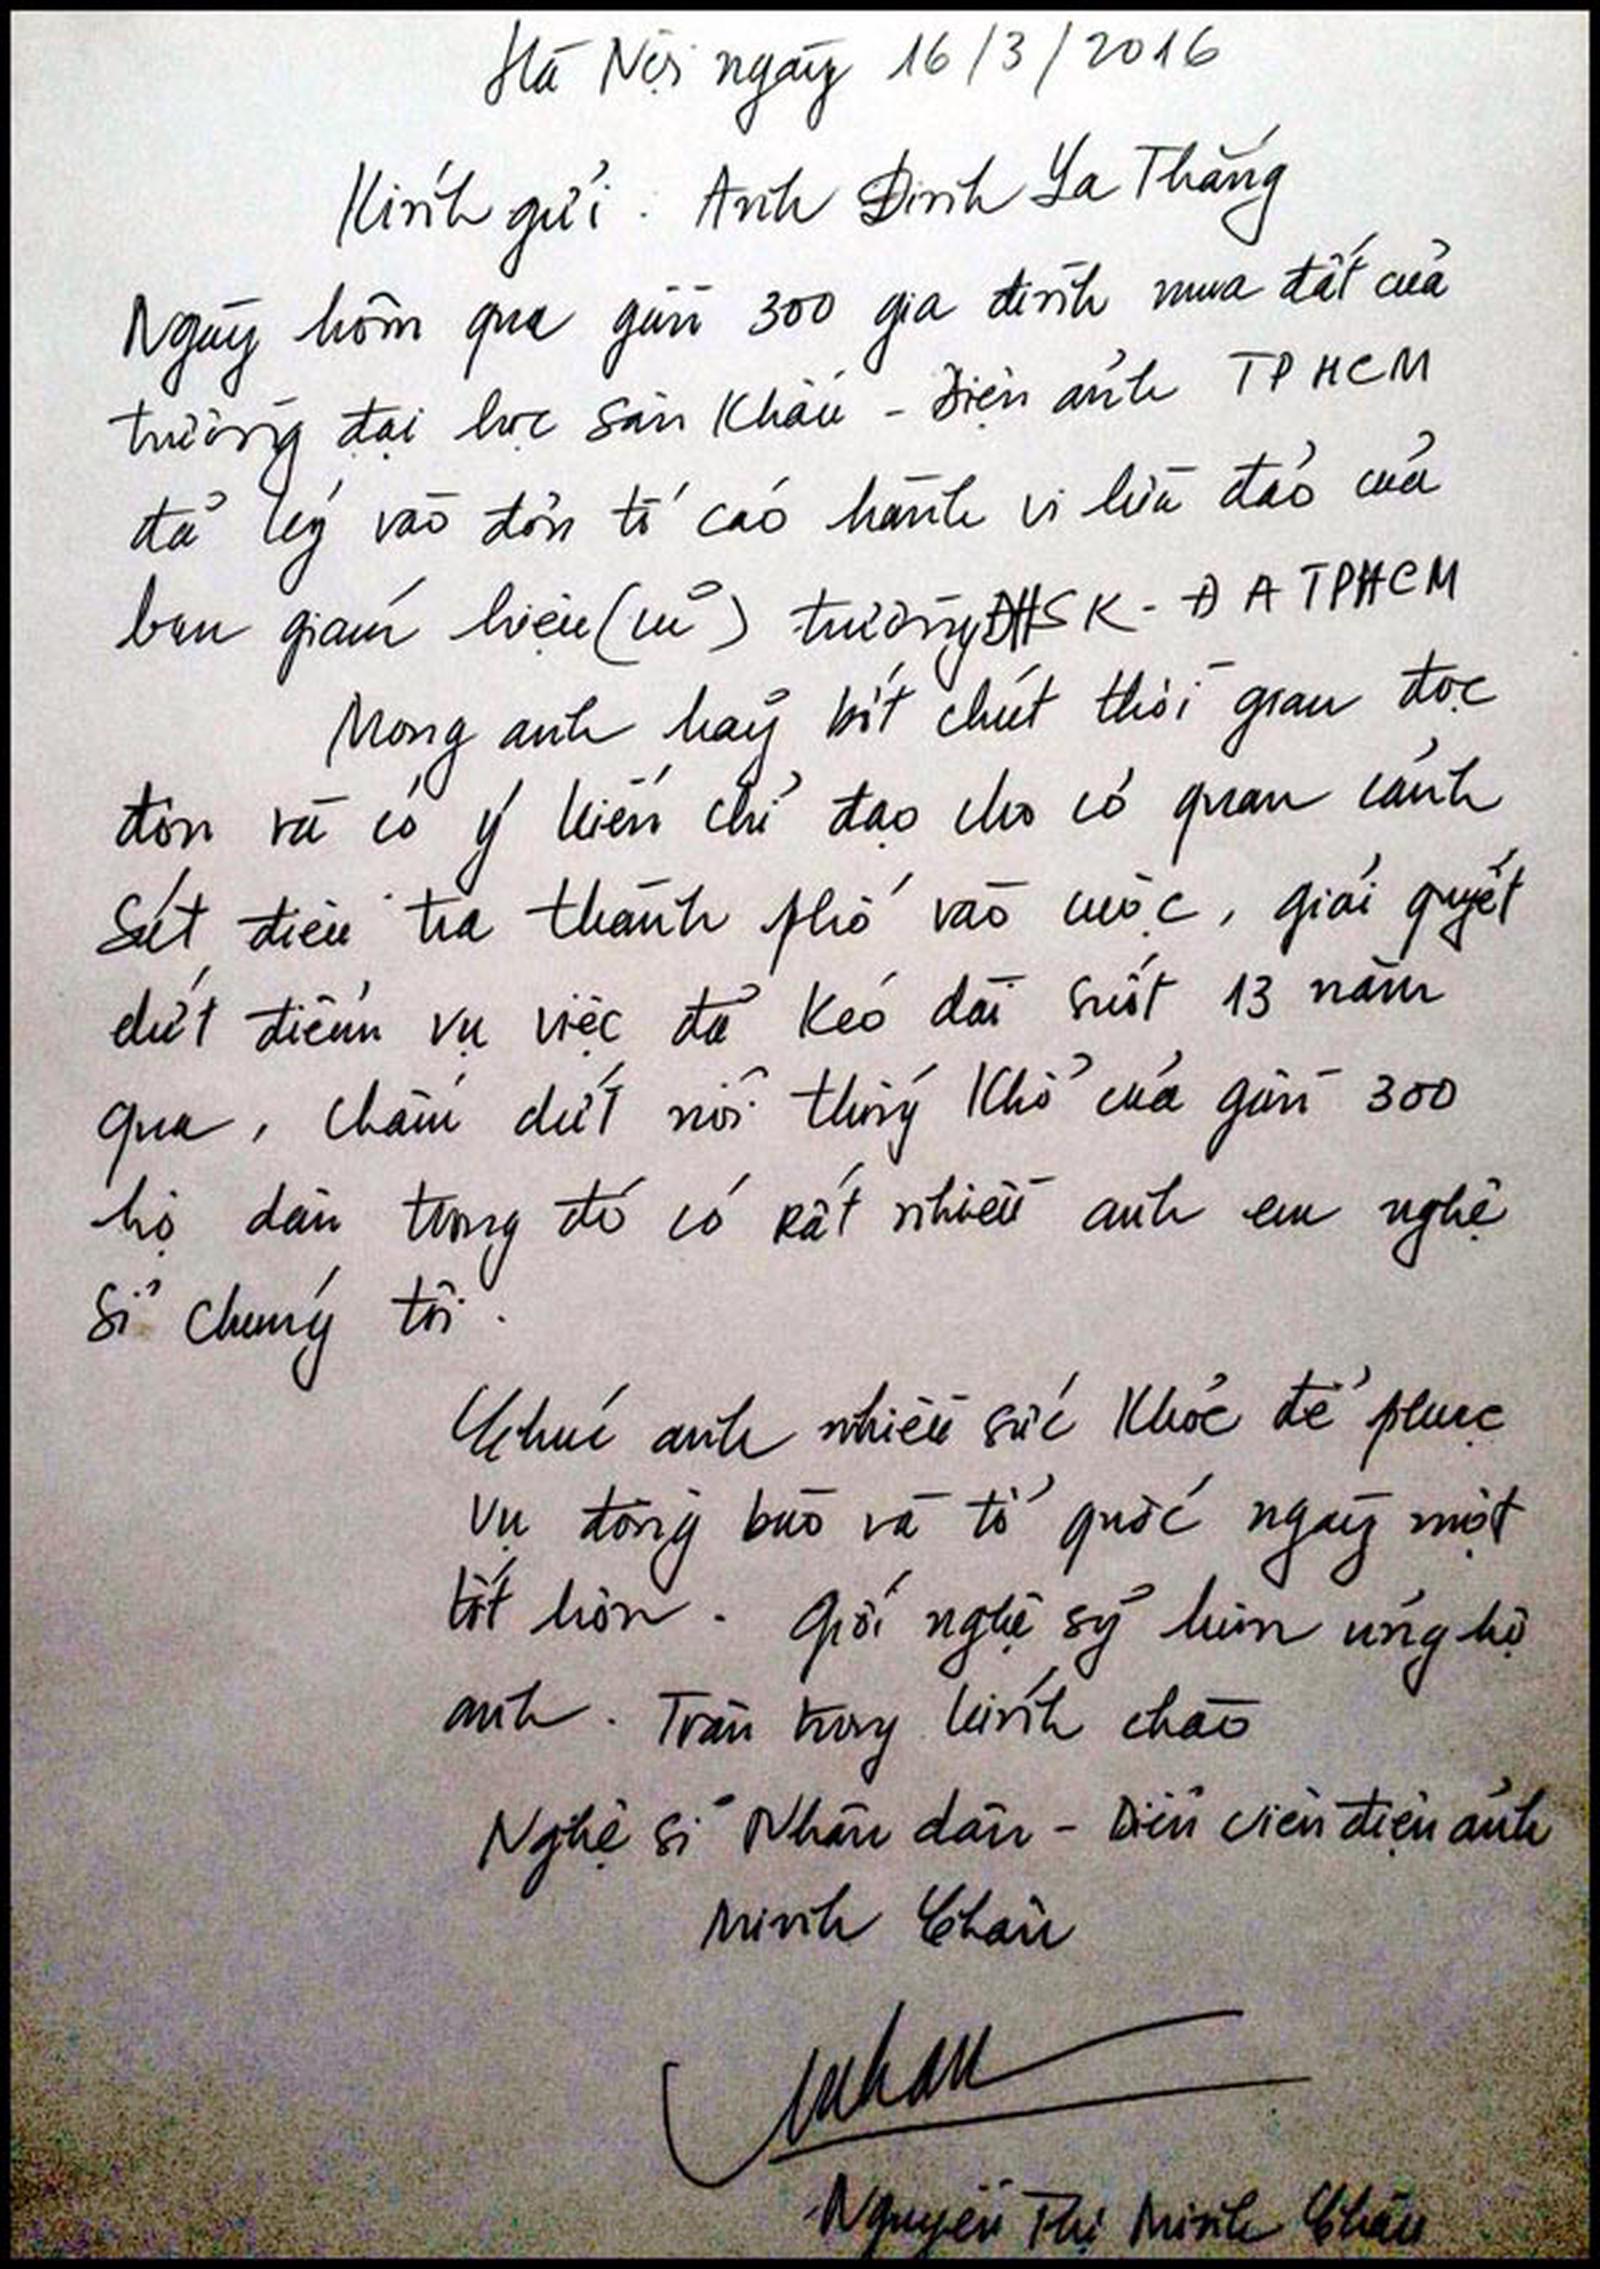 Hà Nội ngày 16/3/2016
Kính gửi: Anh Đinh La Thăng
Ngày hôm qua gần 300 gia đình mua đất của
trường đại học Sân Khấu - Điện ảnh TPHCM
đã ký vào đơn tố cáo hành vi lừa đảo của
ban giám hiệu (cũ) trường ĐHSK-ĐA TPHCM
Mong anh hãy bớt chút thời gian đọc
đơn và có ý kiến chỉ đạo cho cơ quan cảnh
sát điều tra thành phố vào cuộc, giải quyết
dứt điểm vụ việc đã kéo dài suốt 13 năm
qua, chấm dứt nỗi thống khổ của gần 300
hộ dân trong đó có rất nhiều anh em nghệ
sĩ chúng tôi.
Chúc anh nhiều sức khỏe để phục
vụ đồng bào và tổ quốc ngày một
tốt hơn. Giới nghệ sỹ luôn ủng hộ
anh. Trân trọng kính chào
Nghệ sĩ Nhân dân - Diễn viên điện ảnh
Minh Châu
Nguyễn Thị Minh Châu